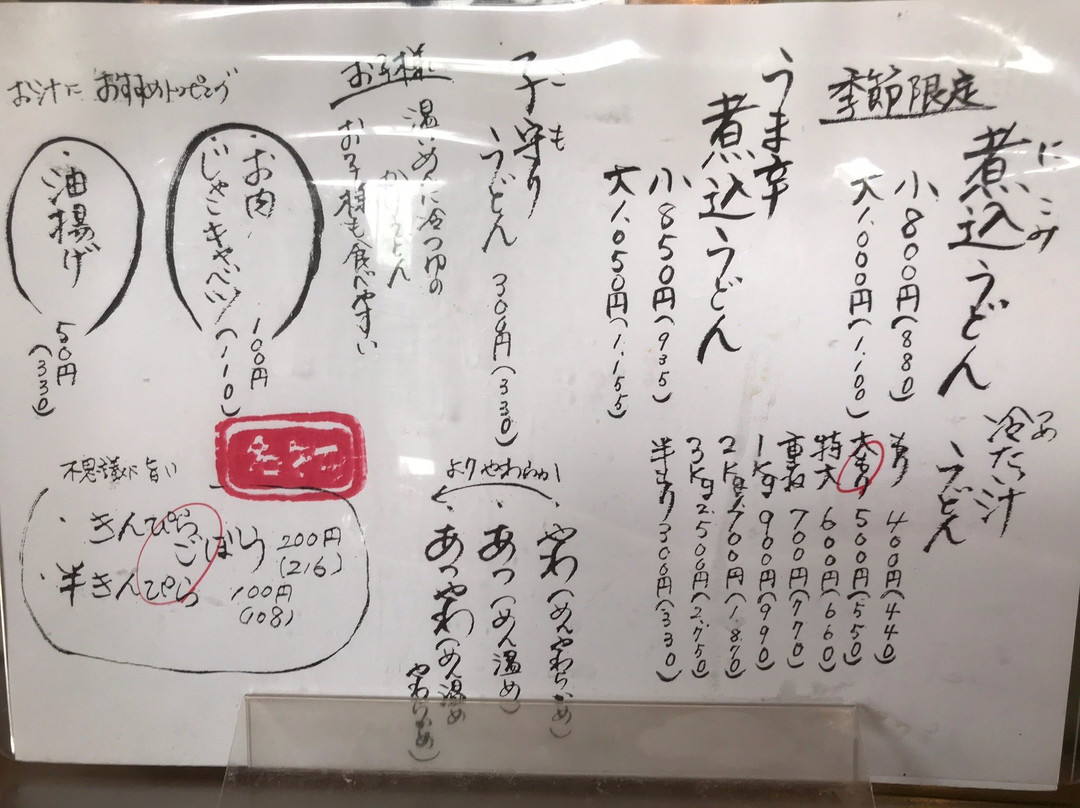 季節限定
煮込うどん
にこみ
小 800円(880)
大 1,000円(1,100)
うま辛
煮込うどん
小 850円(935)
大 1,050円(1,155)
子守りうどん 300円(330)
こも
お子様
温いめんに冷つゆの
かけうどん
お子様も食べやすい
お汁に おすすめトッピング
・お肉
・じゃこキャベツ
100円
(110)
・油揚げ
50円
(330)
冷た汁
うどん
並盛り 400円(440)
大盛り 500円(550)
特大 600円(660)
重ね 700円(770)
1Kg 900円(990)
2Kg 1,700円(1,870)
3Kg 2,500円(2,750)
半盛り 300円(330)
よりやわらかい
・やわ(めんやわらかめ)
・あつ(めん温め)
・あつやわ(めん温め
やわらかめ)
不思議に旨い
・きんぴらごぼう 200円
(216)
・半きんぴら 100円
(108)